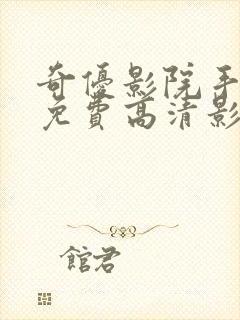 奇優影院手
免費高清影
館君